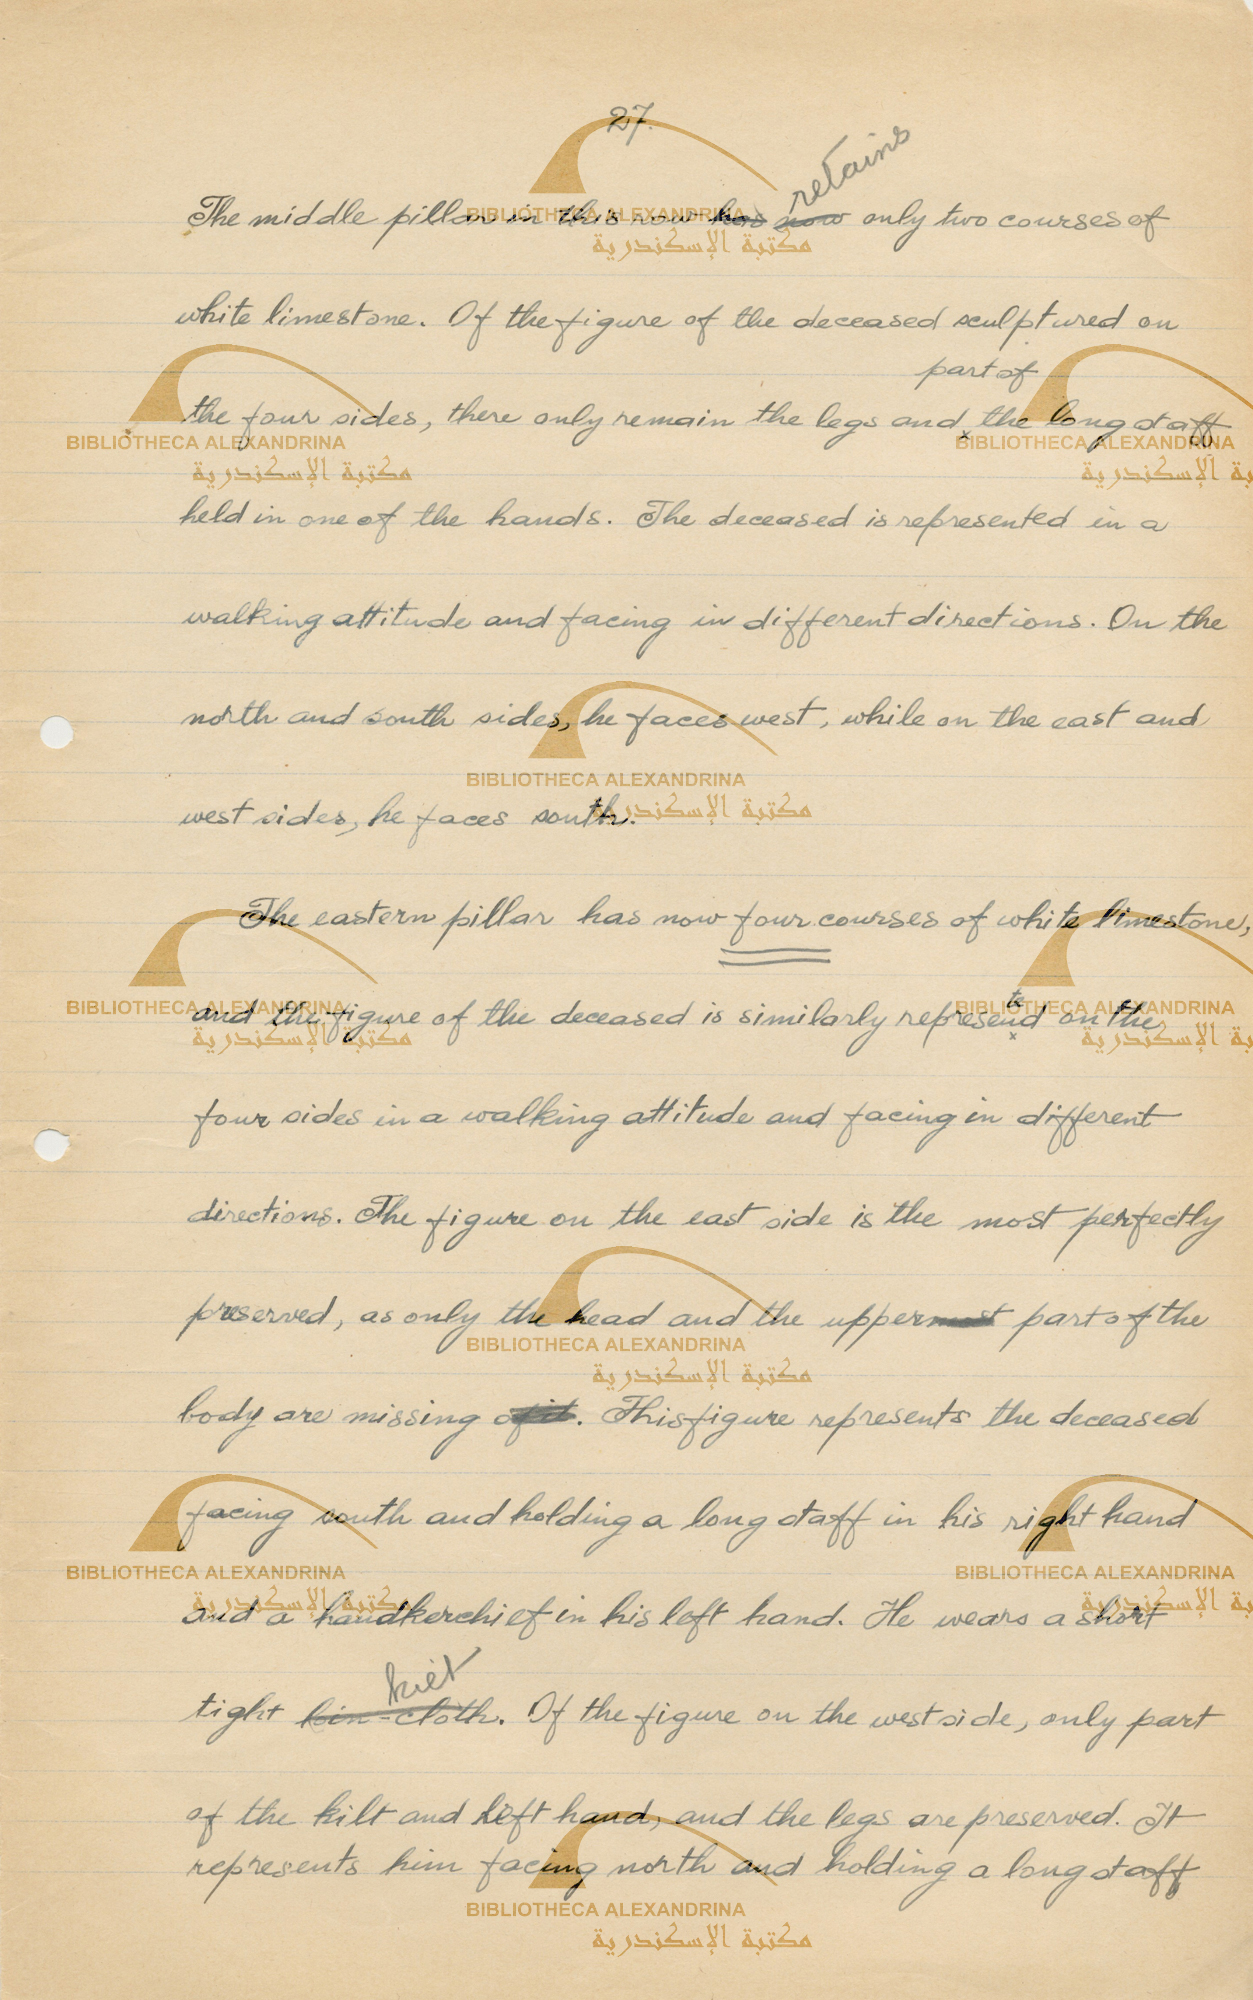 27.
retains
The middle pillar in this row has now only two courses of
white limestone. Of the figure of the deceased sculptured on
part of
the four sides, there only remain the legs and the long staff
held in one of the hands. The deceased is represented in a
walking attitude and facing in different directions. On the
north and south sides, he faces west, while on the east and
west sides, he faces south.
The eastern pillar has now four courses of white limestone,
te
and the figure of the deceased is similarly represend on the
four sides in a walking attitude and facing in different
directions. The figure on the east side is the most perfectly
preserved, as only the head and the uppermost part of the
body are missing of it. This figure represents the deceased
facing south and holding a long staff in his right hand
and a handkerchief in his left hand. He wears a short
kilt
tight loin-cloth. Of the figure on the west side, only part
of the kilt and left hand, and the legs are preserved. It
represents him facing north and holding a long staff
BIBLIOTHECA ALEXANDRINA
مكتبة الإسكندرية
BIBLIOTHECA ALEXANDRINA
مكتبة الإسكندرية
BIBLIOTHECA ALEXANDRINA
مكتبة الإسكندرية
BIBLIOTHECA ALEXANDRINA
مكتبة الإسكندرية
BIBLIOTHECA ALEXANDRINA
مكتبة الإسكندرية
BIBLIOTHECA ALEXANDRINA
مكتبة الإسكندرية
BIBLIOTHECA ALEXANDRINA
مكتبة الإسكندرية
BIBLIOTHECA ALEXANDRINA
مكتبة الإسكندرية
BIBLIOTHECA ALEXANDRINA
مكتبة الإسكندرية
BIBLIOTHECA ALEXANDRINA
مكتبة الإسكندرية